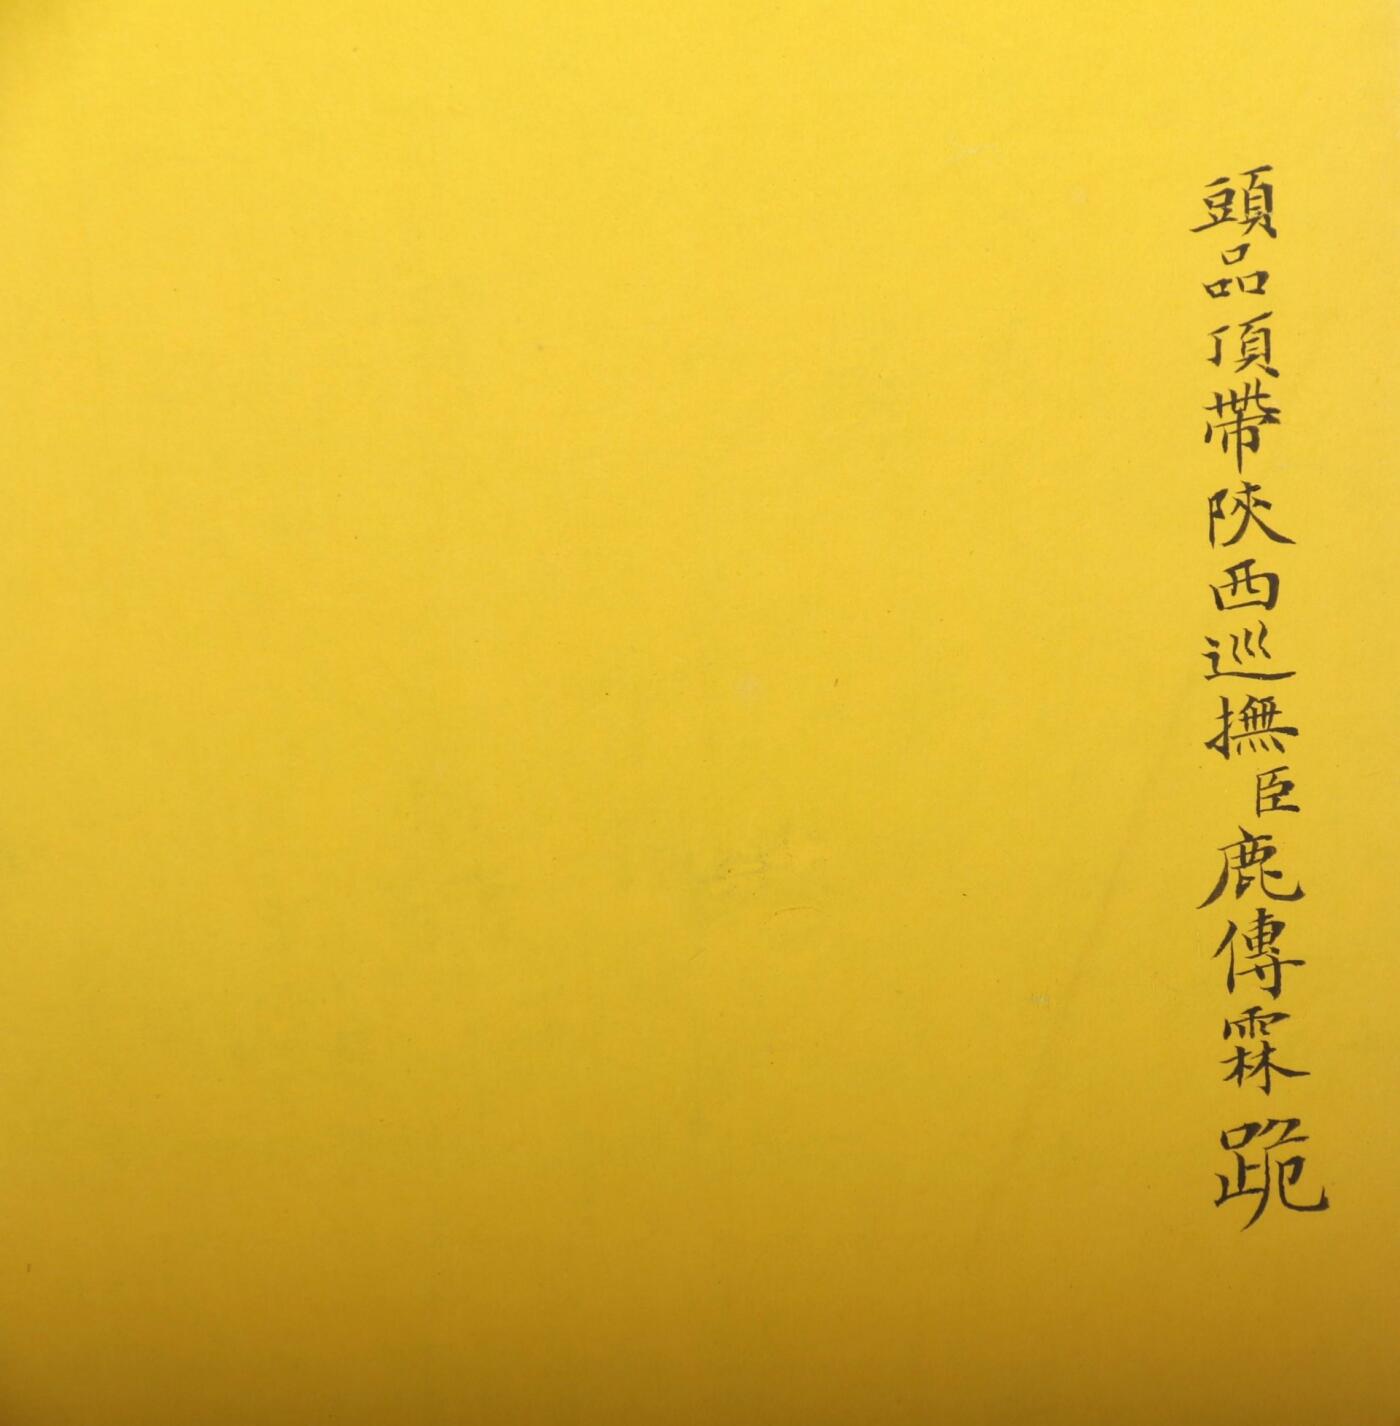 頭品頂帶陝西巡撫臣鹿傳霖跪